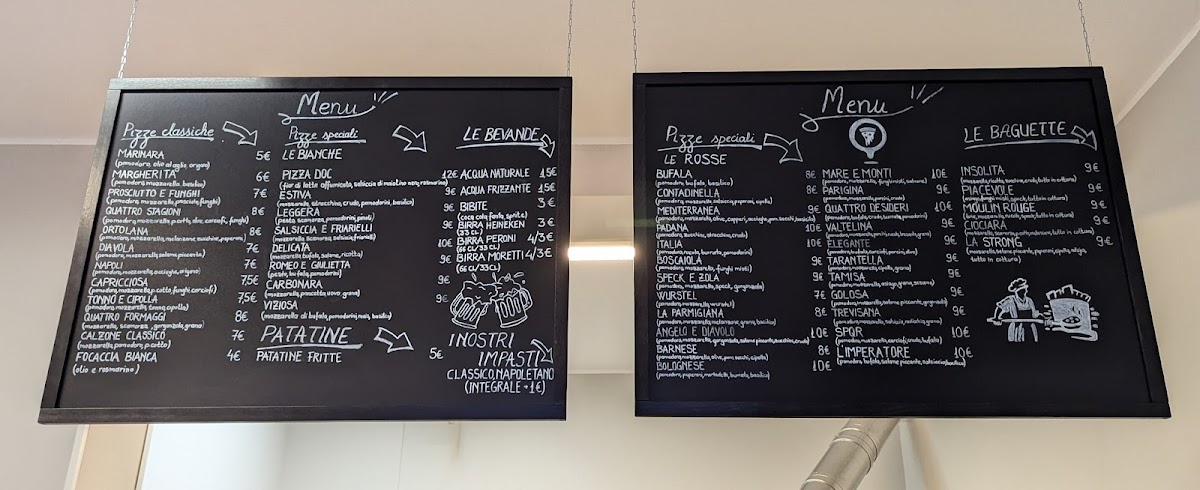 Menu
Pizze classiche
MARINARA 5€
(pomodoro, olio al aglio, origano)
MARGHERITA 6€
(pomodoro, mozzarella, basilico)
PROSCIUTTO E FUNGHI 7€
(pomodoro, mozzarella, prosciutto, funghi)
QUATTRO STAGIONI 8€
(pomodoro, mozzarella, p.cotto, olive, carciofi, funghi)
ORTOLANA 8€
(pomodoro, mozzarella, melanzane, zucchine, peperoni)
DIAVOLA 7€
(pomodoro, mozzarella, salame piccante)
NAPOLI 7€
(pomodoro, mozzarella, acciughe, origano)
CAPRICCIOSA 7,5€
(pomodoro, mozzarella, p.cotto, funghi, carciofi)
TONNO E CIPOLLA 7,5€
(pomodoro, mozzarella, tonno, cipolla)
QUATTRO FORMAGGI 8€
(mozzarella, scamorza, gorgonzola, grana)
CALZONE CLASSICO 7€
(mozzarella, pomodoro, p.cotto)
FOCACCIA BIANCA 4€
(olio e rosmarino)
Pizze speciali
LE BIANCHE
PIZZA DOC 12€
(fior di latte affumicato, salsiccia di maialino nero, rosmarino)
ESTIVA 9€
(mozzarella, stracchino, crudo, pomodorini, basilico)
LEGGERA 9€
(pesto, scamorza, pomodorini, pinoli)
SALSICCIA E FRIARIELLI 9€
(mozzarella, scamorza, salsiccia, friarielli)
DELICATA 10€
(mozzarella, bufala, salame, ricotta)
ROMEO E GIULIETTA 9€
(pesto, bufala, pomodorini)
CARBONARA 9€
(mozzarella, pancetta, uovo, grana)
VIZIOSA 9€
(mozzarella di bufala, pomodorini, noci, basilico)
PATATINE
PATATINE FRITTE 5€
LE BEVANDE
ACQUA NATURALE 1,5€
ACQUA FRIZZANTE 1,5€
BIBITE 3€
(coca cola, fanta, sprite)
BIRRA HEINEKEN 3€
(33 CL)
BIRRA PERONI 4/3€
(66 CL/33 CL)
BIRRA MORETTI 4/3€
(66 CL/33CL)
I NOSTRI
IMPASTI
CLASSICO, NAPOLETANO
(INTEGRALE +1€)
Menu
Pizze speciali
LE ROSSE
BUFALA 8€
(pomodoro, bufala, basilico)
CONTADINELLA 8€
(pomodoro, mozzarella, salsiccia, peperoni, cipolla)
MEDITERRANEA 9€
(pomodoro, mozzarella, olive, capperi, acciughe, pom. secchi, basilico)
PADANA 10€
(pomodoro, zucchine, stracchino, crudo)
ITALIA 10€
(pomodoro, bufala, burrata, pomodorini)
BOSCAIOLA 8€
(pomodoro, mozzarella, funghi misti)
SPECK E ZOLA 9€
(pomodoro, mozzarella, speck, gorgonzola)
WURSTEL 7€
(pomodoro, mozzarella, wurstel)
LA PARMIGIANA 8€
(pomodoro, mozzarella, melanzane, grana, basilico)
ANGELO E DIAVOLO 10€
BARNESE 8€
(pomodoro, mozzarella, olive, pom. secchi, cipolla)
BOLOGNESE 10€
(pomodoro, peperoni, mortadella, burrata, basilico)
MARE E MONTI 10€
(pomodoro, mozzarella, funghi misti, salmone)
PARIGINA 9€
(pomodoro, mozzarella, porcini, crudo)
QUATTRO DESIDERI 10€
(pomodoro, bufala, crudo, burrata, pomodorini)
VALTELINA 9€
ELEGANTE 9€
TARANTELLA 9€
(pomodoro, mozzarella, cipolla, grana)
TAMISA 9€
GOLOSA 9€
(pomodoro, mozzarella, salame piccante, gorgonzola)
TREVISANA 9€
(pomodoro, mozzarella, salsiccia, radicchio, grana)
SPQR 10€
(pomodoro, mozzarella, carciofi, crudo, bufala)
L'IMPERATORE 10€
(pomodoro, bufala, salame piccante, salsiccia, basilico)
LE BAGUETTE
INSOLITA 9€
PIACEVOLE 9€
MOULIN ROUGE 9€
CIOCIARA 9€
LA STRONG 9€
tutto in cottura)